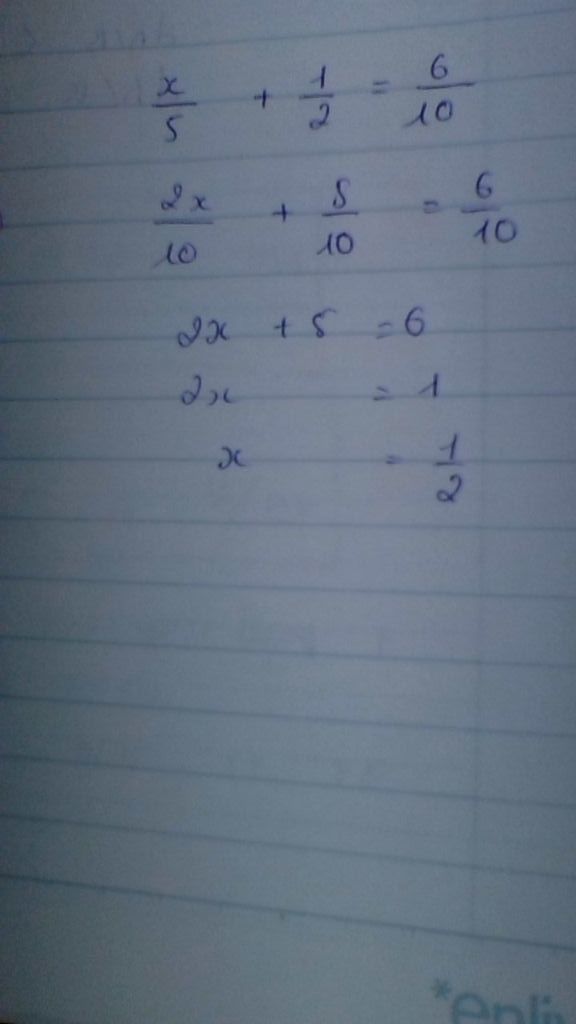 x/5 + 1/2 = 6/10
2x/10 + 5/10 = 6/10
2x + 5 = 6
2x = 1
x = 1/2